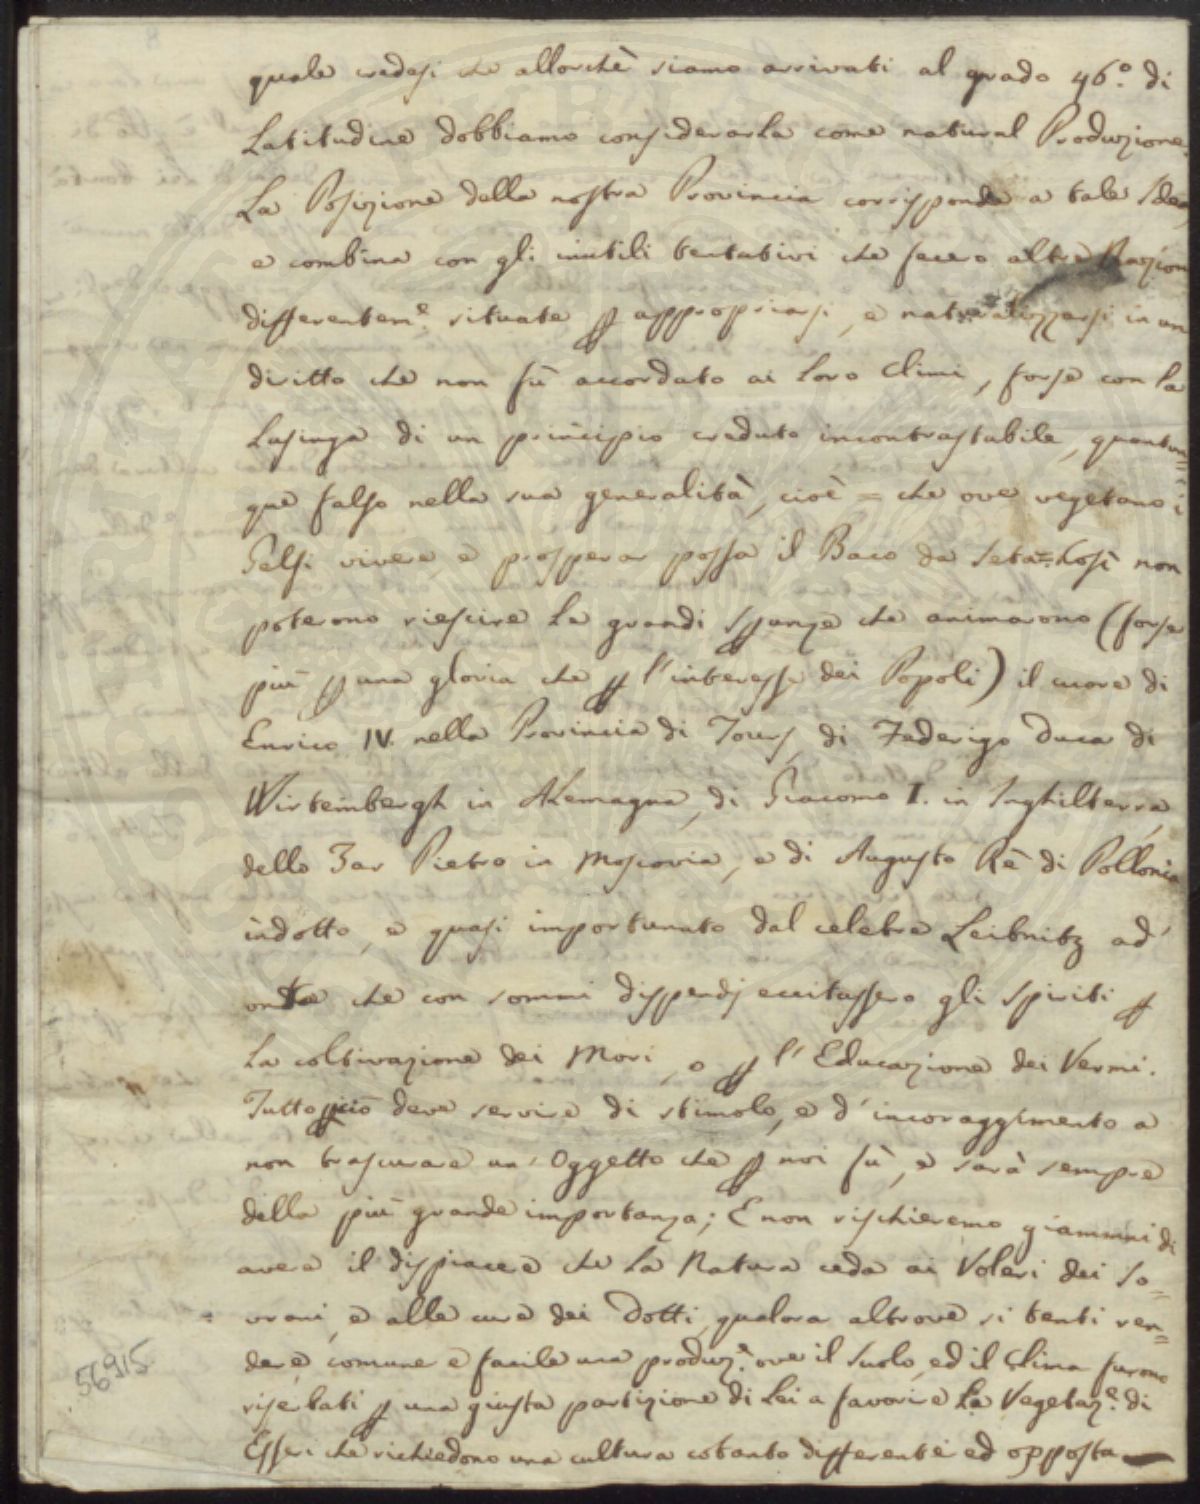 quale credesi che allorchè siamo arrivati al grado 46.º di
Latitudine dobbiamo considerarla come natural Produzione.
La Posizione della nostra Provincia corrisponde a tale Idea,
e combina con gli inutili tentativi che fecero altre Nazioni
differentem.e situate p appropriarsi, e naturalizzarsi in un
diritto che non fù accordato ai loro Climi, forse con la
Lusinga di un principio creduto incontrastabile, quantun=
que falso nella sua generalità, cioè = che ove vegetano i
Gelsi vivere, e prosperar possa il Baco da Seta = Così non
poterono riescire le grandi Spanze che animarono (forse
più p una gloria che p l'interesse dei Popoli) il cuore di
Enrico IV. nella Provincia di Tours, di Federigo Duca di
Wirtembergh in Alemagna, di Giacomo I. in Inghilterra,
dello Zar Pietro in Moscovia, e di Augusto Rè di Pollonia
indotto, e quasi importunato dal celebre Leibnitz ad'
onta che con sommi dispendj eccitassero gli Spiriti p
la coltivazione dei Mori, o p l'Educazione dei Vermi.
Tutto ciò deve servire di stimolo, e d'incoraggimento a
non trascurare un'Oggetto che p noi fù, e sarà sempre
della più grande importanza; E non rischieremo giammai di
avere il dispiacere che la Natura ceda ai Voleri dei So=
vrani, e alle cure dei Dotti, qualora altrove si tenti ren=
dere comune e facile una produz.e ove il Suolo, ed il Clima furono
riserbati p una giusta partizione di Lei a favorire la Vegetaz.e di
Esseri che richiedono una cultura cotanto differente ed opposta —
56915